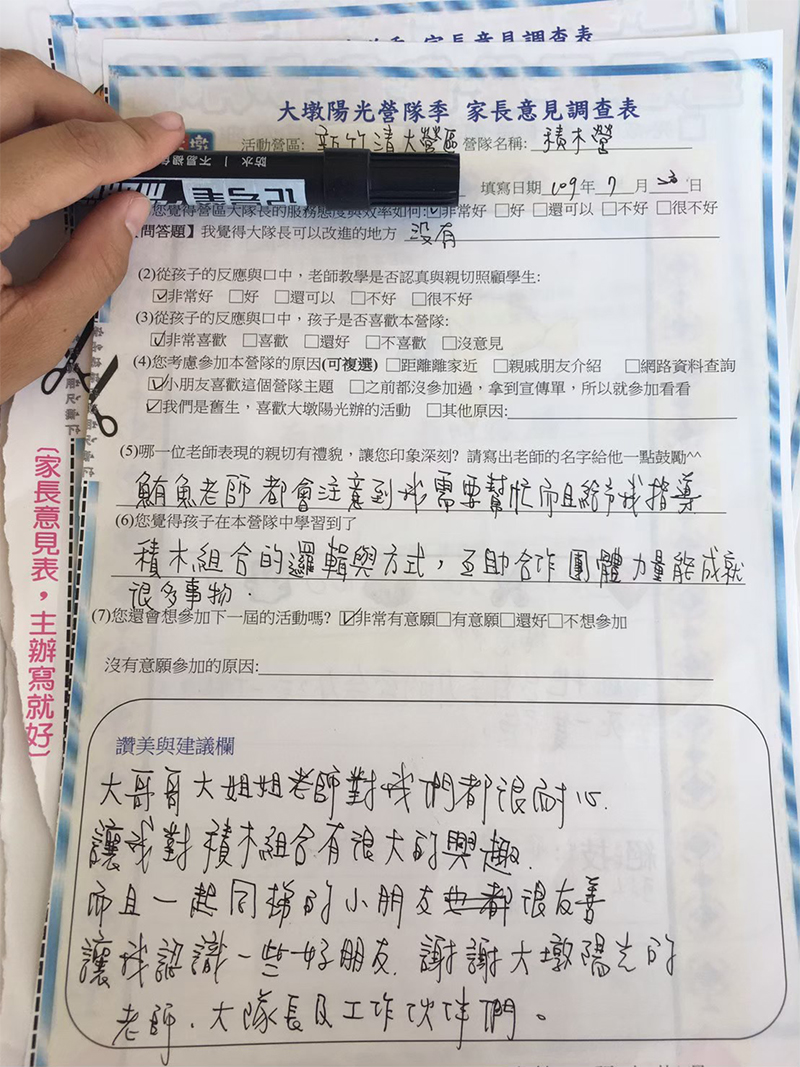 家長意見調查表
大墩陽光營隊季 家長意見調查表
活動營區: 新竹清大營區 營隊名稱: 積木營
填寫日期 109 年 7 月 日
防水 | 不易褪
記號筆
您覺得營區大隊長的服務態度與效率如何:☑非常好 □好 □還可以 □不好 □很不好
問答題】我覺得大隊長可以改進的地方 沒有
(2)從孩子的反應與口中,老師教學是否認真與親切照顧學生:
☑非常好 □好 □還可以 □不好 □很不好
(3)從孩子的反應與口中,孩子是否喜歡本營隊:
☑非常喜歡 □喜歡 □還好 □不喜歡 □沒意見
(4)您考慮參加本營隊的原因(可複選) □距離離家近 □親戚朋友介紹 □網路資料查詢
☑小朋友喜歡這個營隊主題 □之前都沒參加過,拿到宣傳單,所以就參加看看
☑我們是舊生,喜歡大墩陽光辦的活動 □其他原因:
(5)哪一位老師表現的親切有禮貌,讓您印象深刻? 請寫出老師的名字給他一點鼓勵^^
鮪魚老師都會注意到我需要幫忙而且給予我指導
(6)您覺得孩子在本營隊中學習到了
積木組合的邏輯與方式,互助合作團體力量能成就
很多事物.
(7)您還會想參加下一屆的活動嗎? ☑非常有意願□有意願□還好□不想參加
沒有意願參加的原因:
讚美與建議欄
大哥哥大姐姐老師對我們都很耐心.
讓我對積木組合有很大的興趣.
而且一起同梯的小朋友都很友善
讓我認識一些好朋友. 謝謝大墩陽光的
老師、大隊長及工作伙伴們。
〔家長意見表,主辦寫就好〕